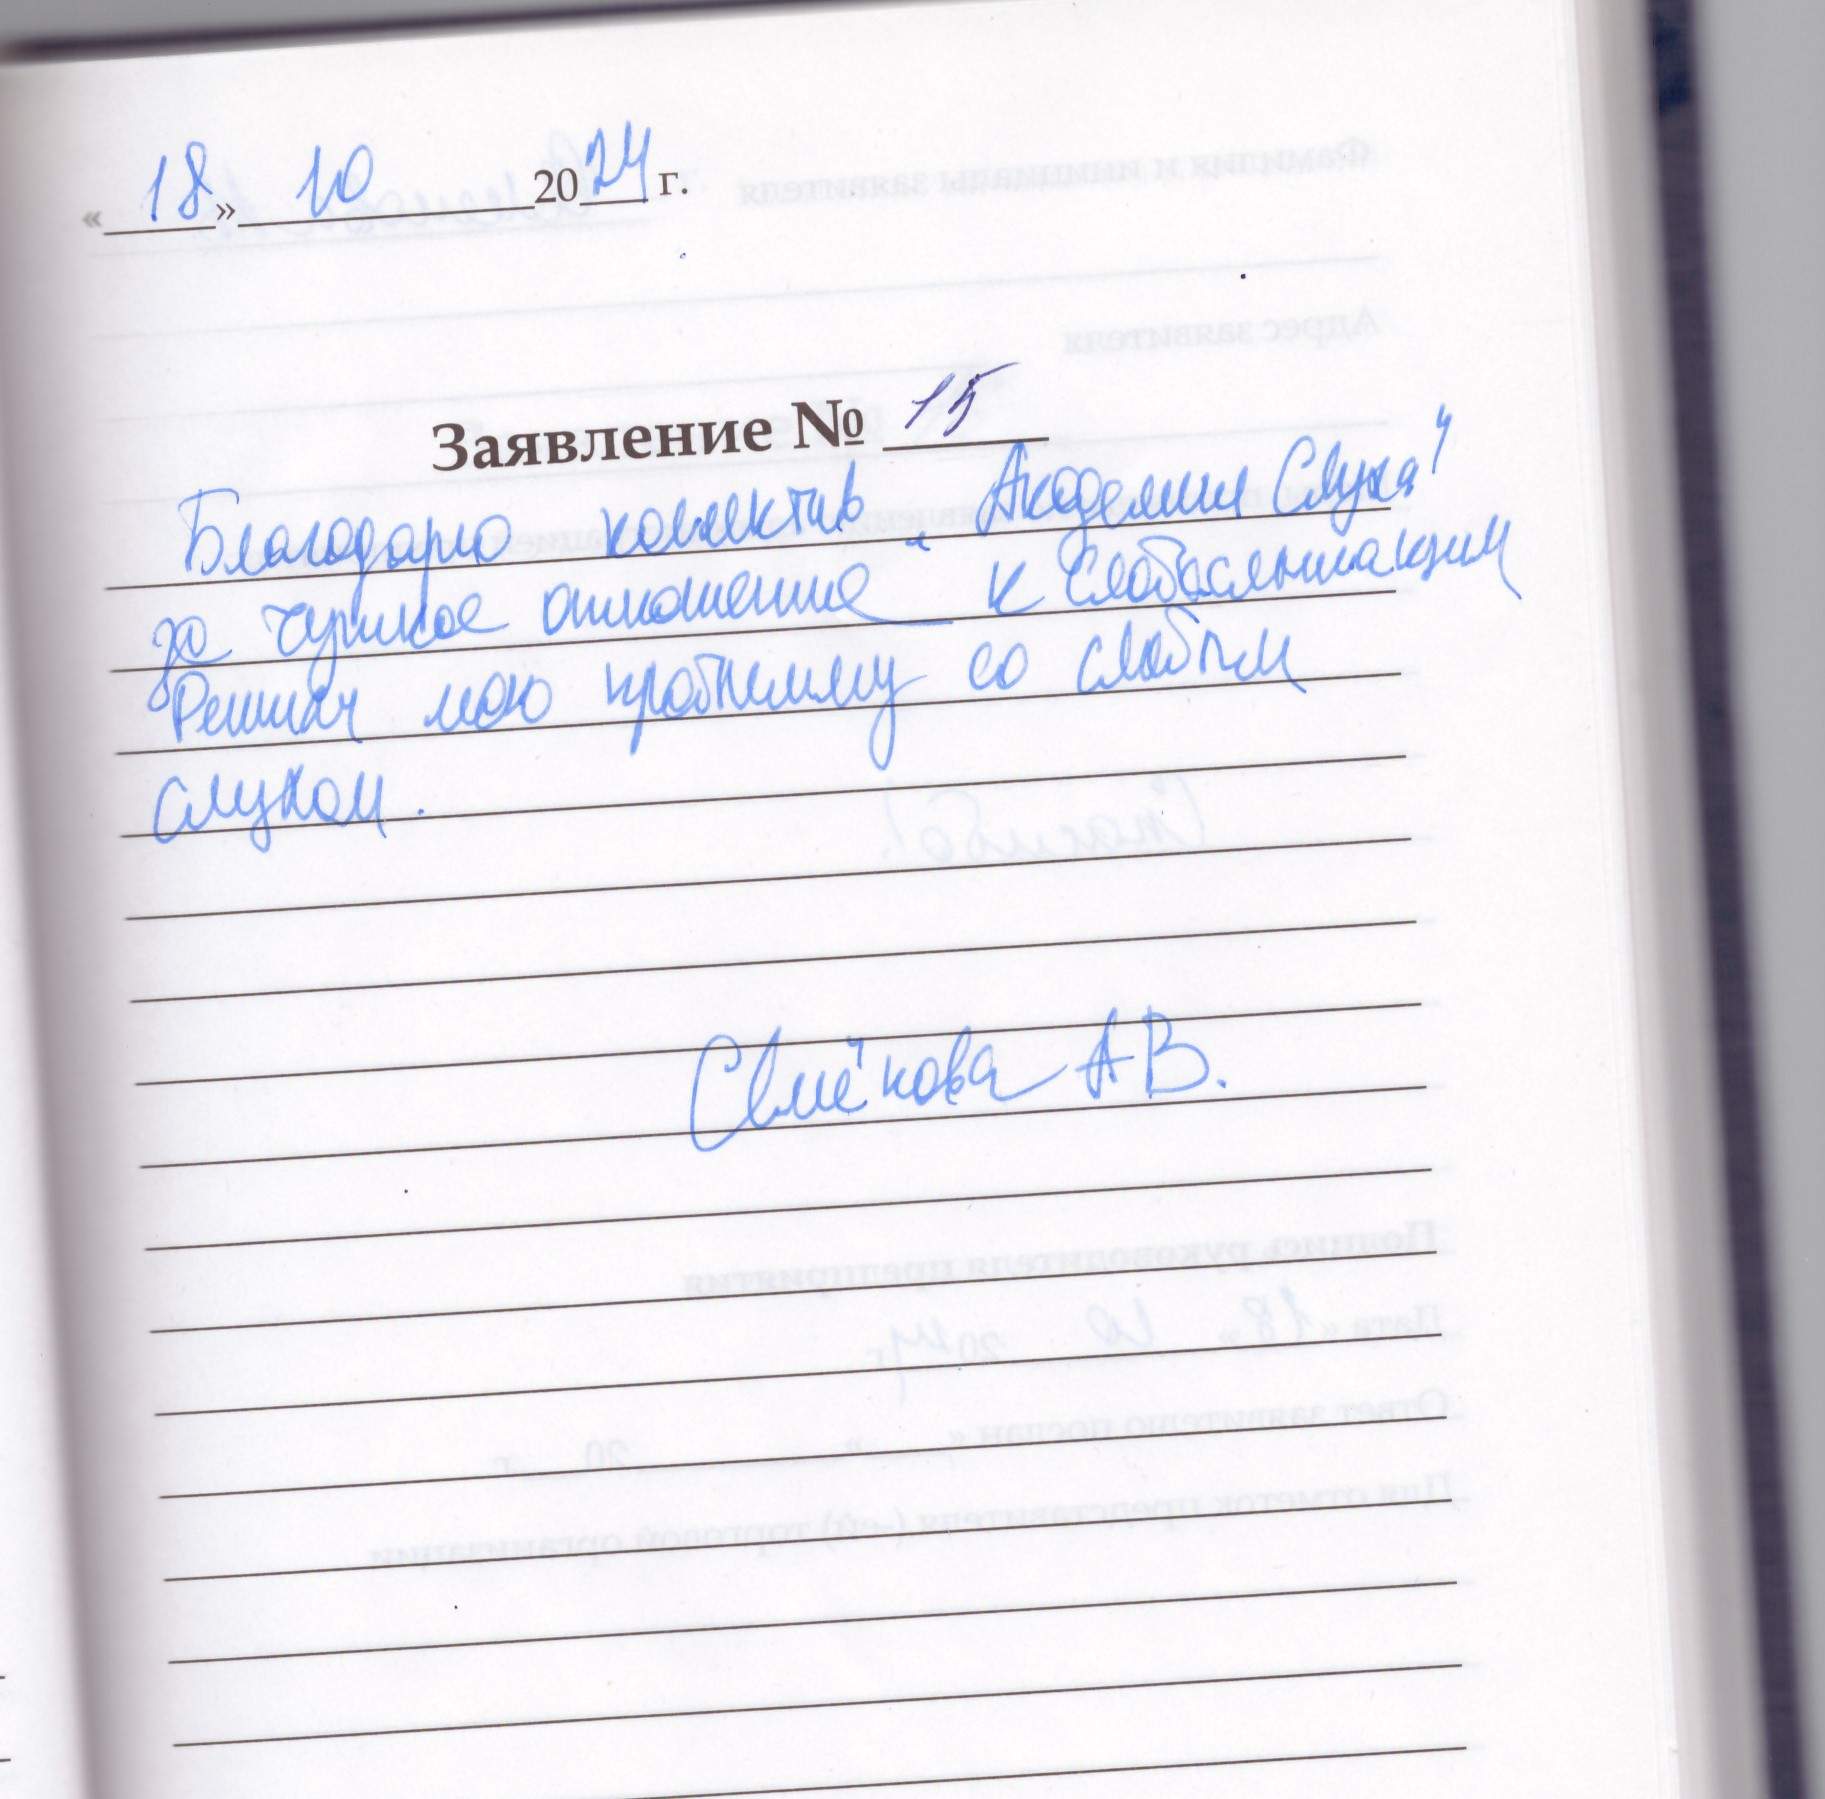 «18» 10 2024 г.
Заявление № 15
Благодарю колектив „Академии Слуха"
за чуткое отношение к слабослышащим
Решили мою проблемму со слабым
слухом.
Семёнова А В.